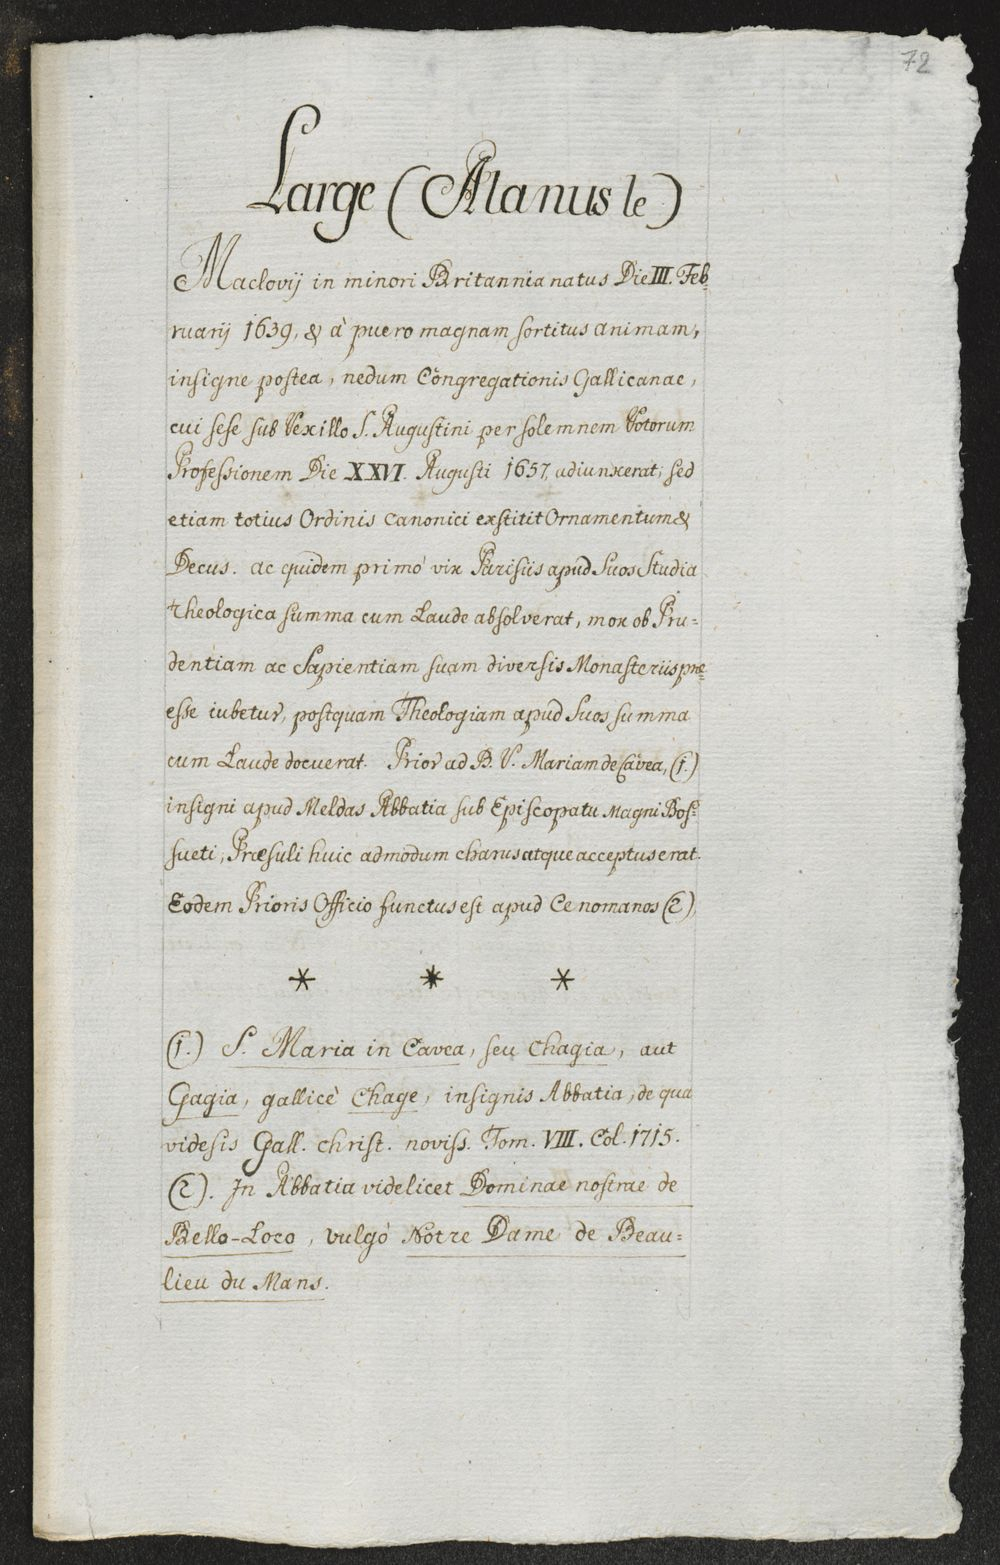 72
Large (Alanus le)
Maclovij in minori Britannia natus Die III. Feb-
ruarij 1639, & à puero magnam sortitus animam,
insigne postea, nedum Congregationis Gallicanae,
cui sese sub Vexillo S. Augustini per solemnem Votorum
Professionem Die XXVI. Augusti 1657, adiunxerat, sed
etiam totius Ordinis Canonici exstitit Ornamentum &
Decus. ac quidem primò vix Parisiis apud Suos Studia
theologica summa cum Laude absolverat, mox ob Pru=
dentiam ac Sapientiam suam diversis Monasteriis prae=
esse iubetur, postquam Theologiam apud Suos summa
cum Laude docuerat. Prior ad B. V. Mariam de Cavea, (1.)
insigni apud Meldas Abbatia sub Episcopatu Magni Bos=
sueti, Praesuli huic admodum charus atque acceptus erat.
Eodem Prioris Officio functus est apud Cenomanos (2)
* * *
(1.) S. Maria in Cavea, seu Chagia, aut
Gagia, gallicè Chage, insignis Abbatia, de qua
videsis Gall. christ. noviss. Tom. VIII. Col. 1715.
(2). In Abbatia videlicet Dominae nostrae de
Bello-Loco, vulgò Notre Dame de Beau=
lieu du Mans.